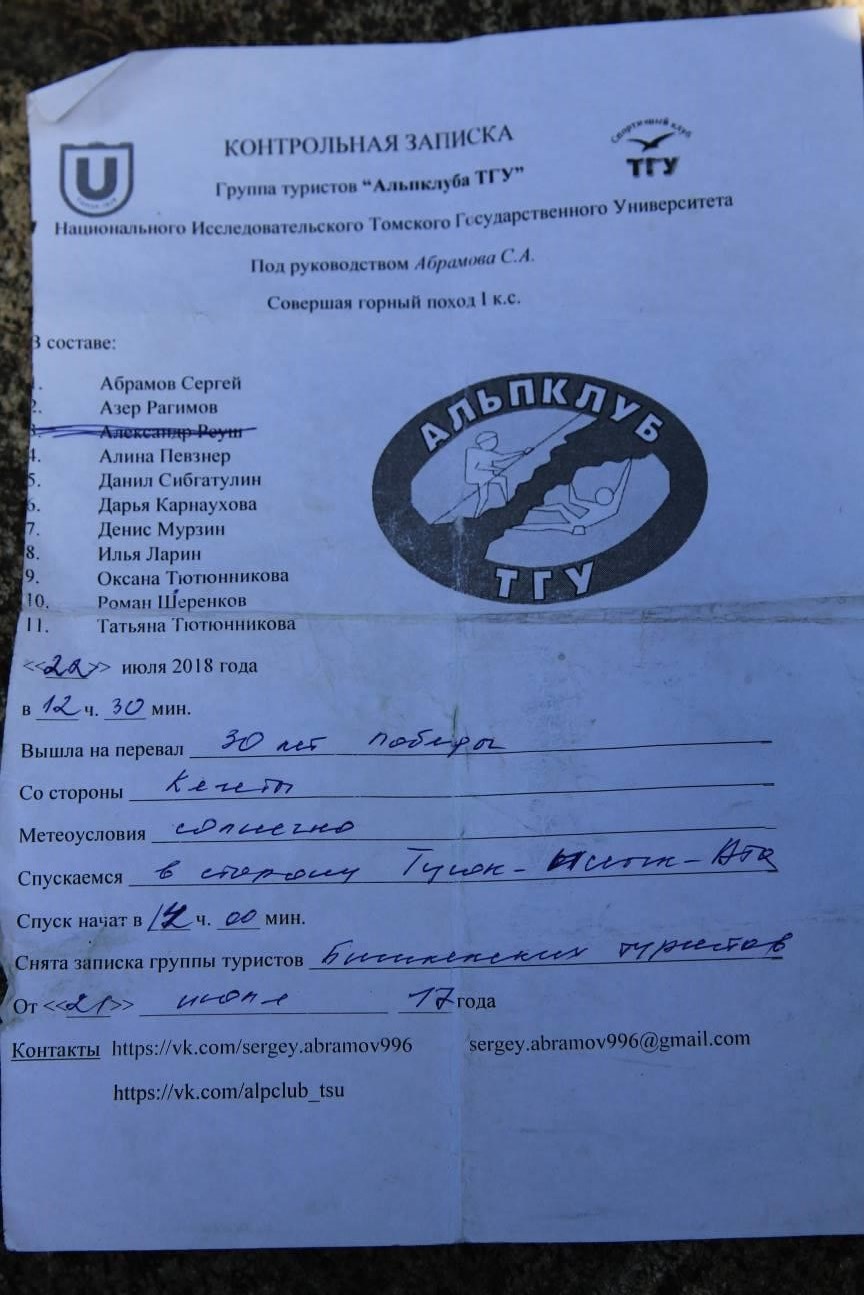 КОНТРОЛЬНАЯ ЗАПИСКА
Спортивный клуб
ТГУ
Группа туристов “Альпклуба ТГУ”
Национального Исследовательского Томского Государственного Университета
Под руководством Абрамова С.А.
Совершая горный поход I к.с.
В составе:
1. Абрамов Сергей
2. Азер Рагимов
3. Александр Реуш
4. Алина Певзнер
5. Данил Сибгатулин
6. Дарья Карнаухова
7. Денис Мурзин
8. Илья Ларин
9. Оксана Тютюнникова
10. Роман Шеренков
11. Татьяна Тютюнникова
АЛЬПКЛУБ
ТГУ
<<22>> июля 2018 года
в 12 ч. 30 мин.
Вышла на перевал 30 лет победы
Со стороны Кегеты
Метеоусловия солнечно
Спускаемся в сторону Туюк-Ысык-Ата
Спуск начат в ч. 00 мин.
Снята записка группы туристов Бишкекских туристов
От <<21>> июля 17 года
Контакты https://vk.com/sergey.abramov996 sergey.abramov996@gmail.com
https://vk.com/alpclub_tsu